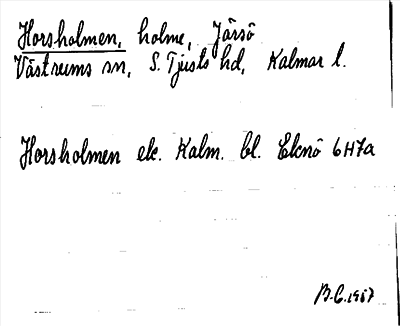 Horsholmen, holme, Järsö
Västrums sn, S. Tjusts hd, Kalmar l.
Horsholmen ek. Kalm. bl. Eknö 6H7a
B.C. 1957